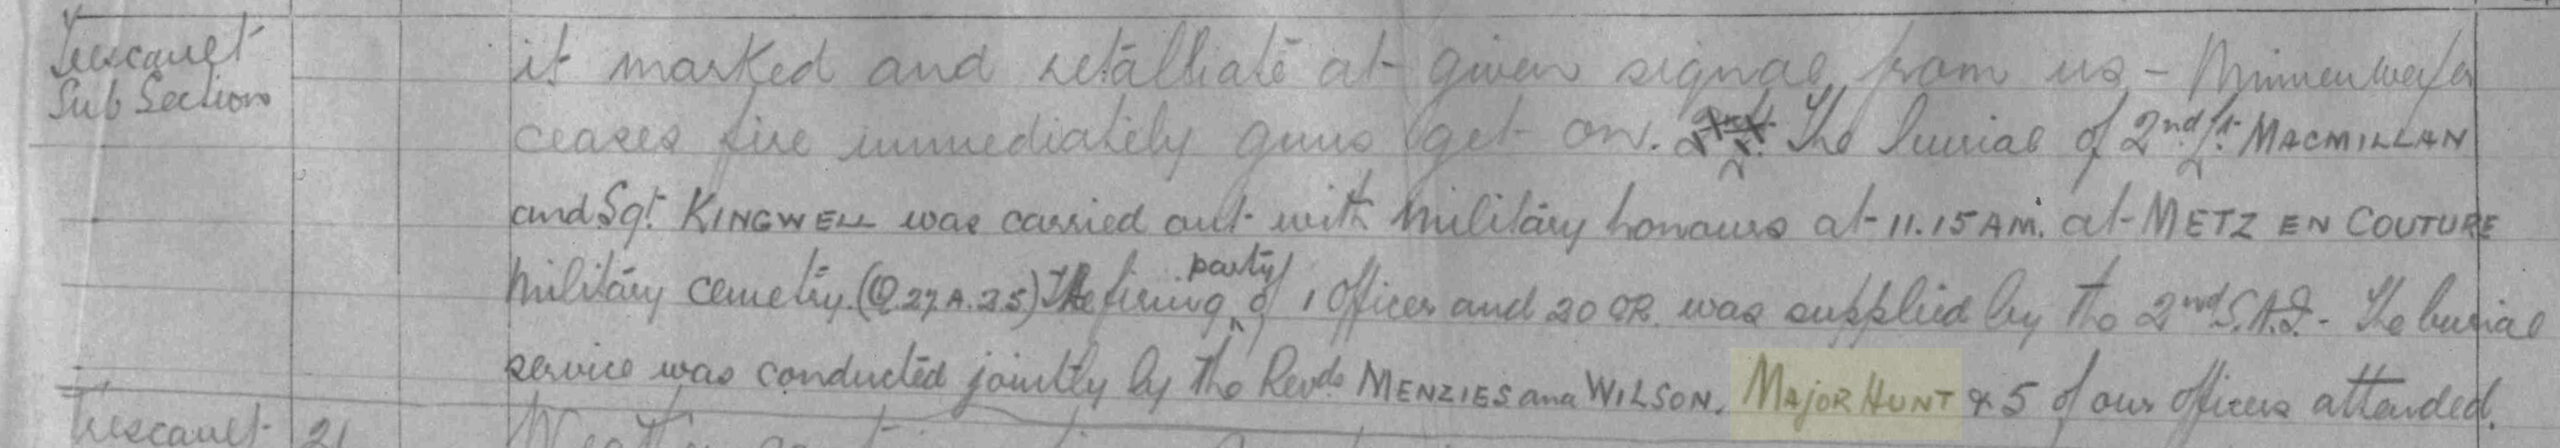 Trescault it marked and retalliate at given signal from us - Minnenwerfer
Sub Section ceases fire immediately guns get on. The burial of 2nd Lt. MACMILLAN
and Sgt. KINGWELL was carried out with Military honours at 11.15 AM. at METZ EN COUTURE
Military cemetry. (Q.27.A.25) The firing party of 1 Officer and 20 OR. was supplied by the 2nd S.A.I. - The burial
service was conducted jointly by the Revds MENZIES and WILSON. MAJOR HUNT & 5 of our officers attended.
Trescault 21